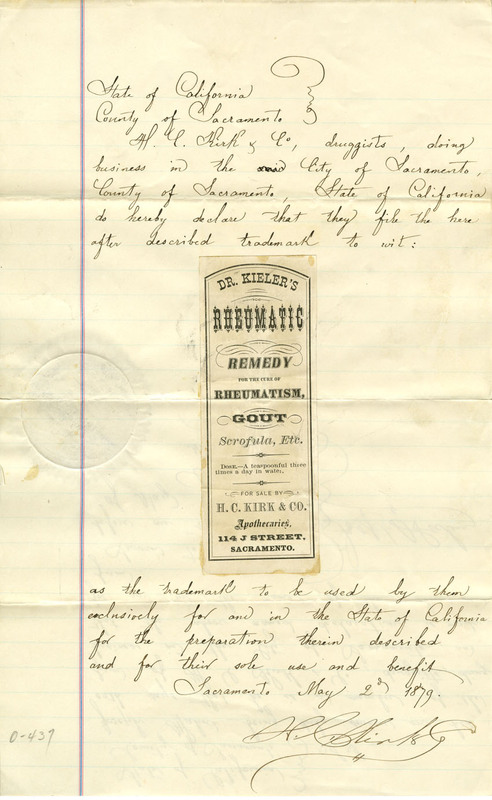 State of California
County of Sacramento
H. C. Kirk & Co, druggists, doing
business in the City of Sacramento,
County of Sacramento, State of California
do hereby declare that they file the here
after described trademark to wit:
DR. KIELER'S
RHEUMATIC
REMEDY
FOR THE CURE OF
RHEUMATISM,
GOUT
Scrofula, Etc.
DOSE.—A teaspoonful three
times a day in water.
FOR SALE BY
H. C. KIRK & CO.
Apothecaries,
114 J STREET,
SACRAMENTO.
as the trademark to be used by them
exclusively for and in the State of California
for the preparation therein described
and for their sole use and benefit
Sacramento May 2d 1879.
H. C. Kirk & Co
0-437